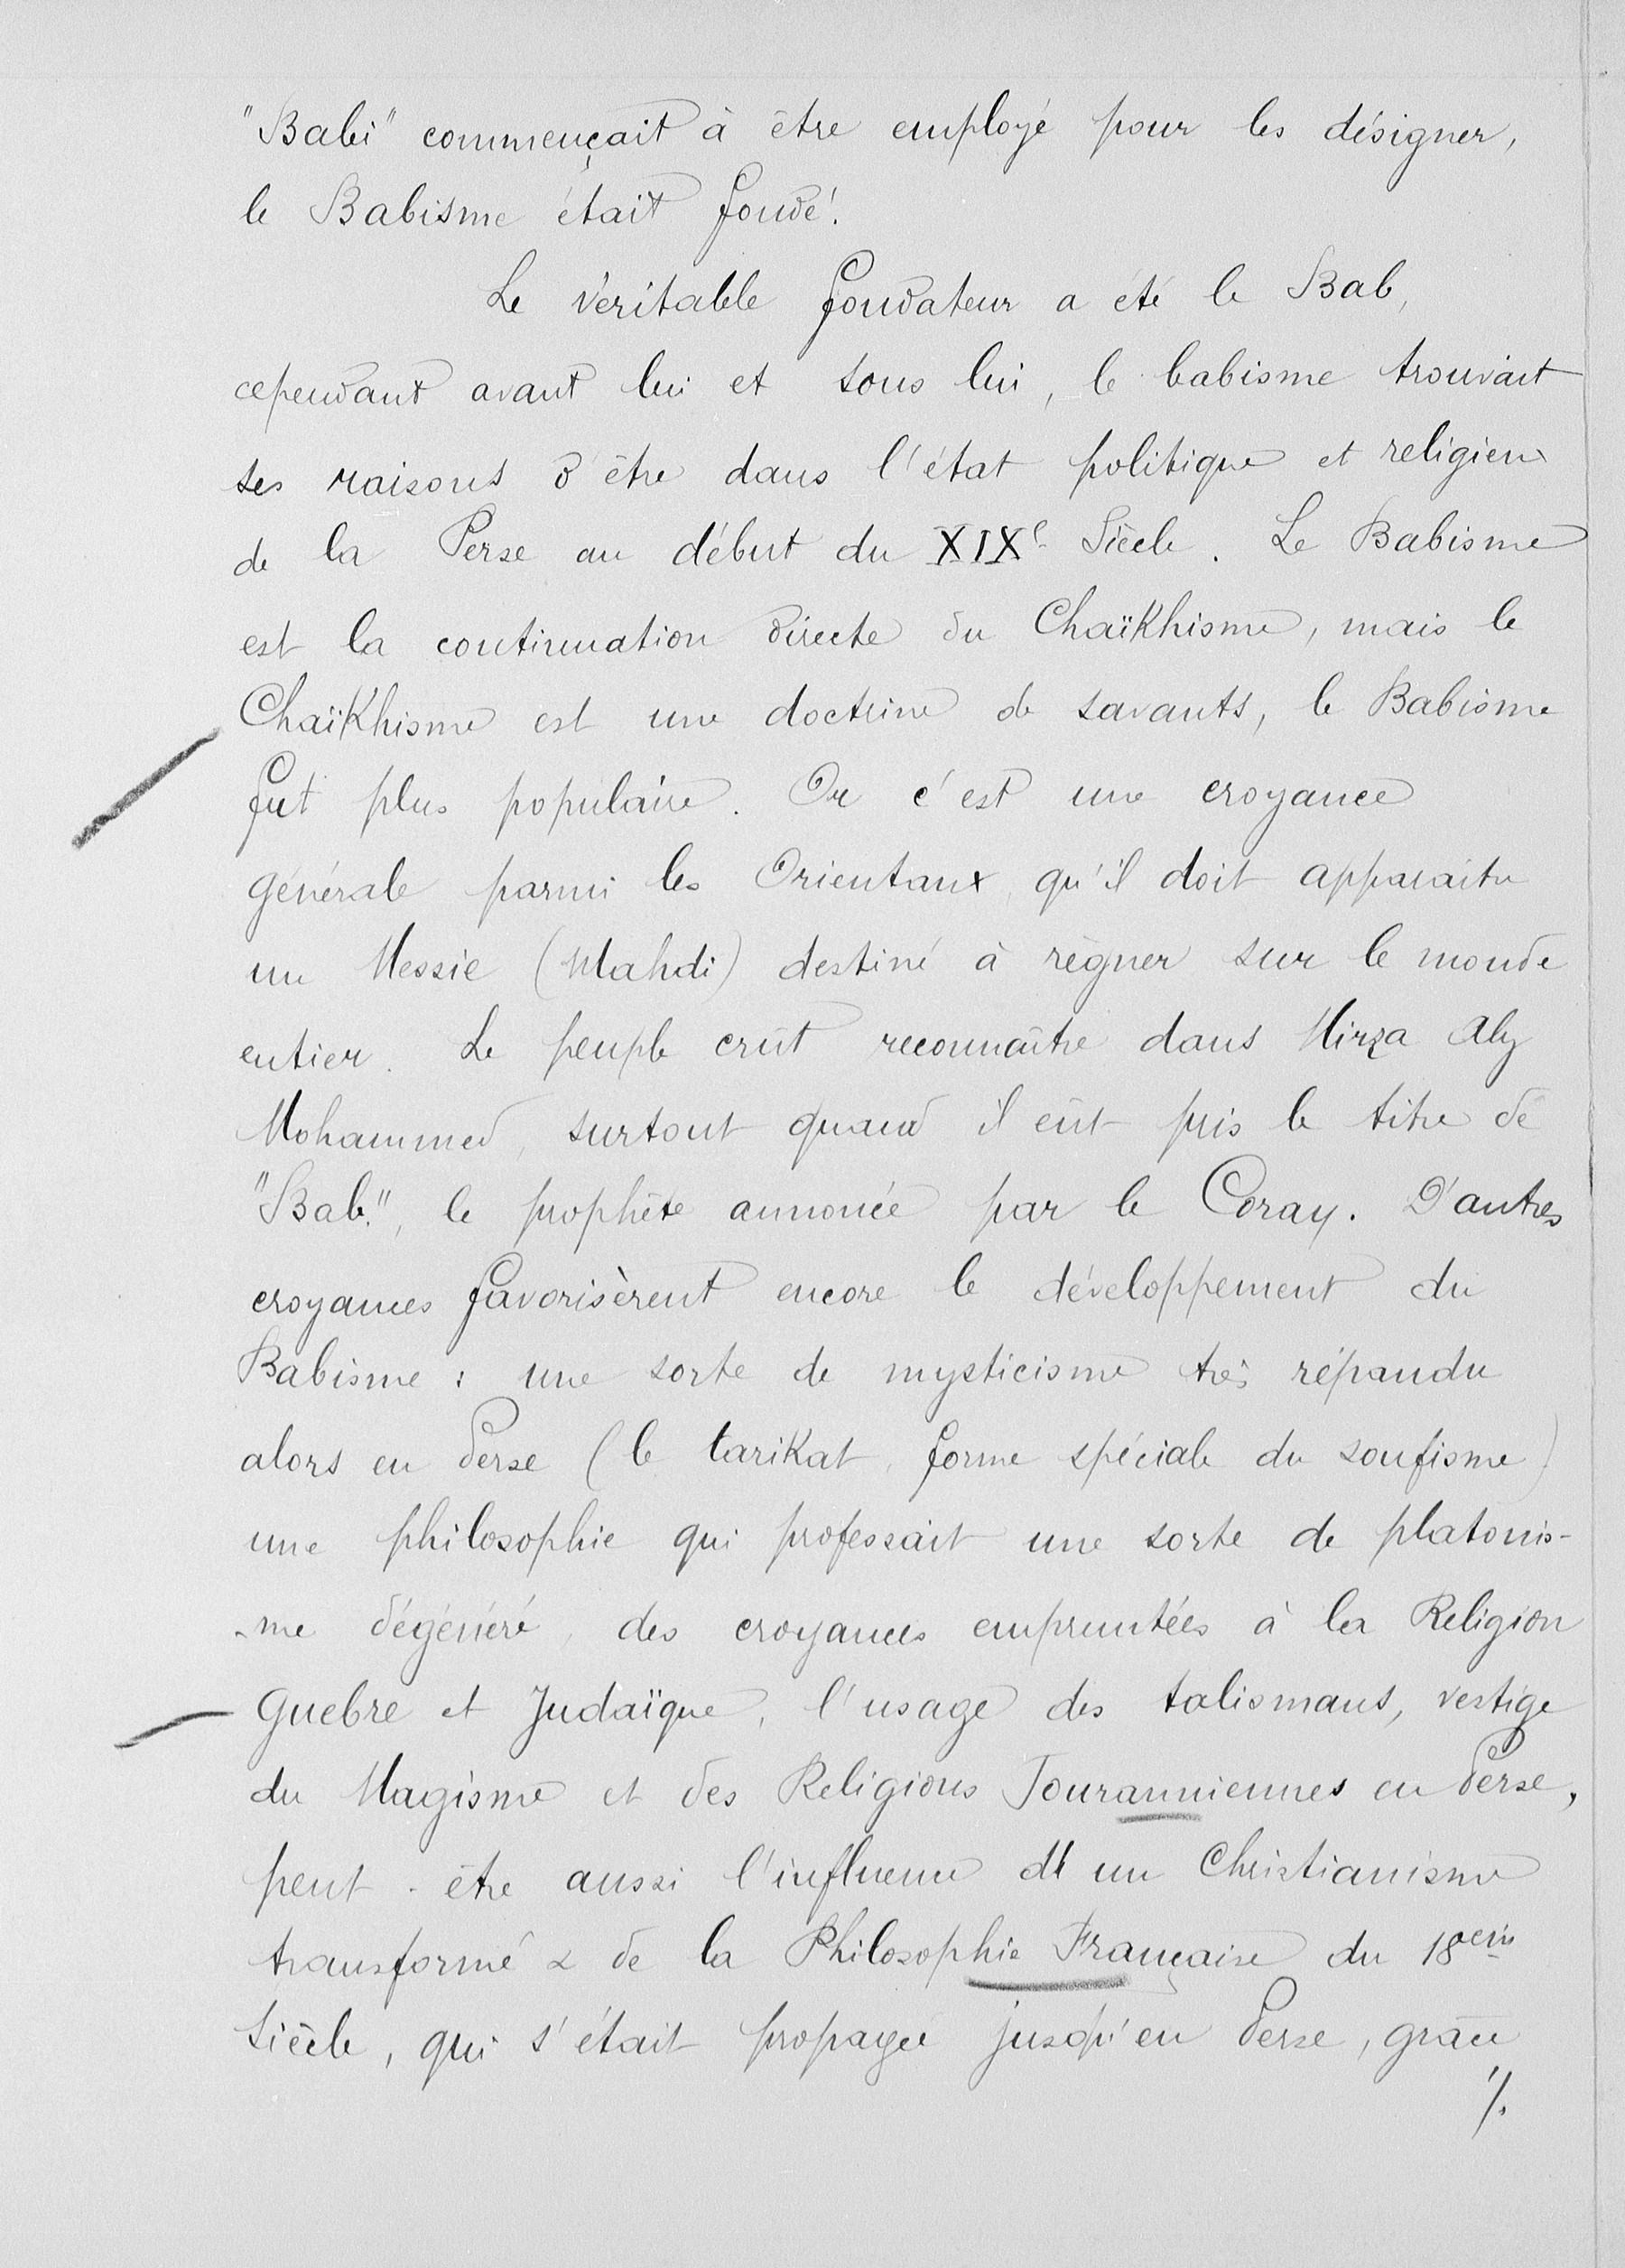 "Babi" commençait à être employé pour les désigner,
le Babisme était fondé.
Le véritable fondateur a été le Bab,
cependant avant lui et sous lui, le babisme trouvait
ses raisons d'être dans l'état politique et religieux
de la Perse au début du XIXe Siècle. Le Babisme
est la continuation directe du Chaïkhisme, mais le
Chaïkhisme est une doctrine de savants, le Babisme
fut plus populaire. Or c'est une croyance
générale parmi les Orientaux, qu'il doit apparaitre
un Messie (Mahdi) destiné à règner sur le monde
entier. Le peuple crût reconnaître dans Mirza Aly
Mohammed, surtout quand il eût pris le titre de
"Bab", le prophète annoncé par le Coran. D'autres
croyances favorisèrent encore le développement du
Babisme : une sorte de mysticisme très répandu
alors en Perse (le tarikat, forme spéciale du soufisme)
une philosophie qui professait une sorte de platonis-
-me dégénéré, des croyances empruntées à la Religion
Guebre et Judaïque, l'usage des talismans, vestige
du Magisme et des Religions Touranniennes en Perse,
peut-être aussi l'influence d'un Christianisme
transformé & de la Philosophie Française du 18eme
Siècle, qui s'était propagée jusqu'en Perse, grâce
/.